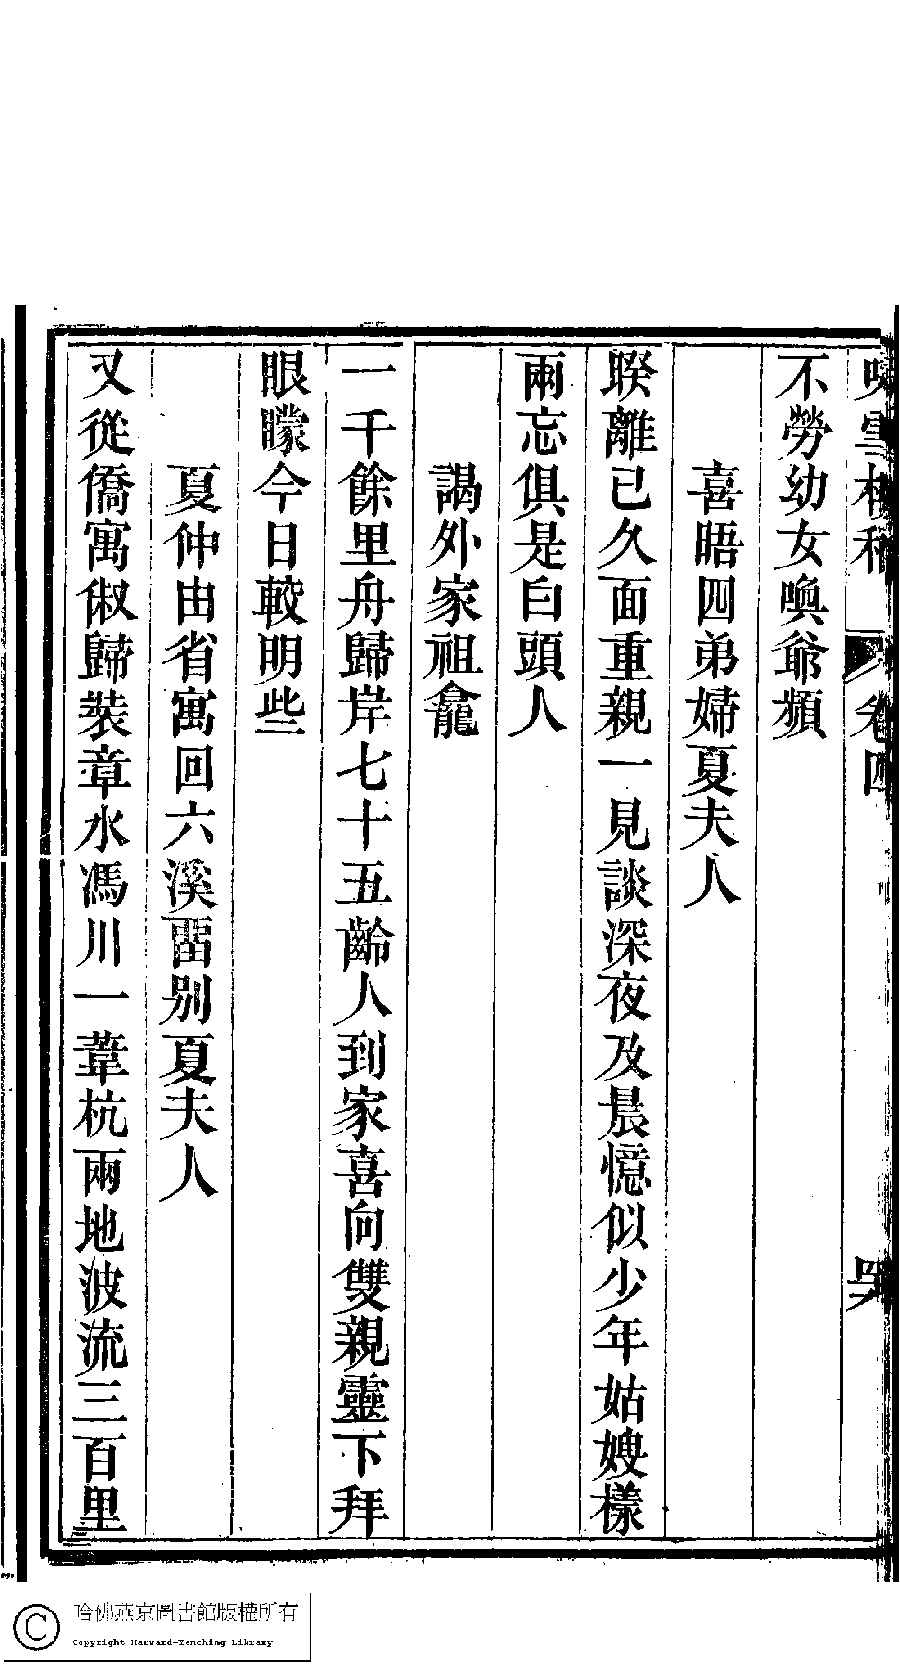 不勞幼女喚爺頻
喜晤四弟婦夏夫人
睽離已久面重親一見談深夜及晨憶似少年姑嫂樣
兩忘俱是白頭人
謁外家祖龕
一千餘里舟歸岸七十五齡人到家喜向雙親靈下拜
眼矇今日較明些
夏仲由省寓回六溪畱別夏夫人
又從僑寓俶歸裝章水馮川一葦杭兩地波流三百里
哈佛燕京圖書館版權所有
Copyright Harvard-Yenching Library